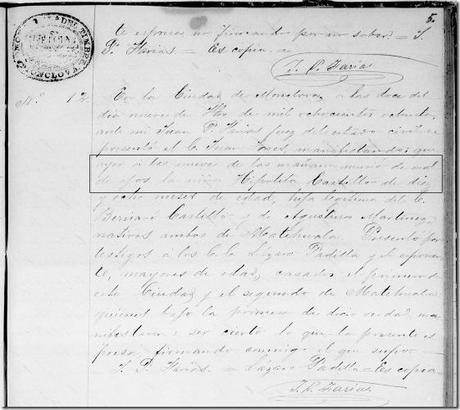 5.
te espresa no firmando por no saber = J.
P. Farias = Es copia
J. P. Farias
N.º 12. En la Ciudad de Monclova a las doce del
dia nueve de de mil ochocientos ochenta
ante mi Juan P. Farias Juez del estado civil se
presentó el C. Juan manifestando que
ayer á las nueve de las mañana murió de mal
de ojos la niña Hipolita Castillo de diez
y ocho meses de edad, hija legitima del C.
Castillo y de Agustina Martinez
nativos ambos de Matehuala. Presentó por
testigos a los C.C. Lazaro Padilla y el esponen
te, mayores de edad, casados el primero de
esta Ciudad y el segundo de Matehuala
quienes bajo la protesta de decir verdad ma
nifestaron ser cierto lo que la presente es
presa firmando conmigo el que supo =
J. P. Farias = Lazaro Padilla = Es copia
J. P. Farias